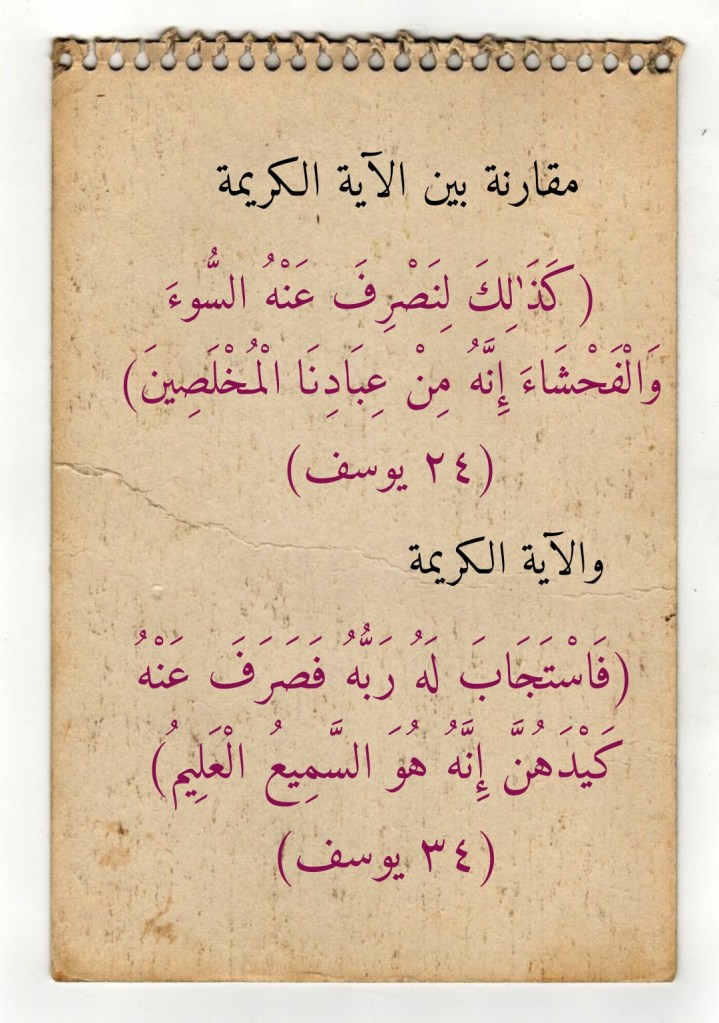 مقارنة بين الآية الكريمة
(كَذَٰلِكَ لِنَصْرِفَ عَنْهُ السُّوءَ
وَالْفَحْشَاءَ إِنَّهُ مِنْ عِبَادِنَا الْمُخْلَصِينَ)
(٢٤ يوسف)
والآية الكريمة
(فَاسْتَجَابَ لَهُ رَبُّهُ فَصَرَفَ عَنْهُ
كَيْدَهُنَّ إِنَّهُ هُوَ السَّمِيعُ الْعَلِيمُ)
(٣٤ يوسف)